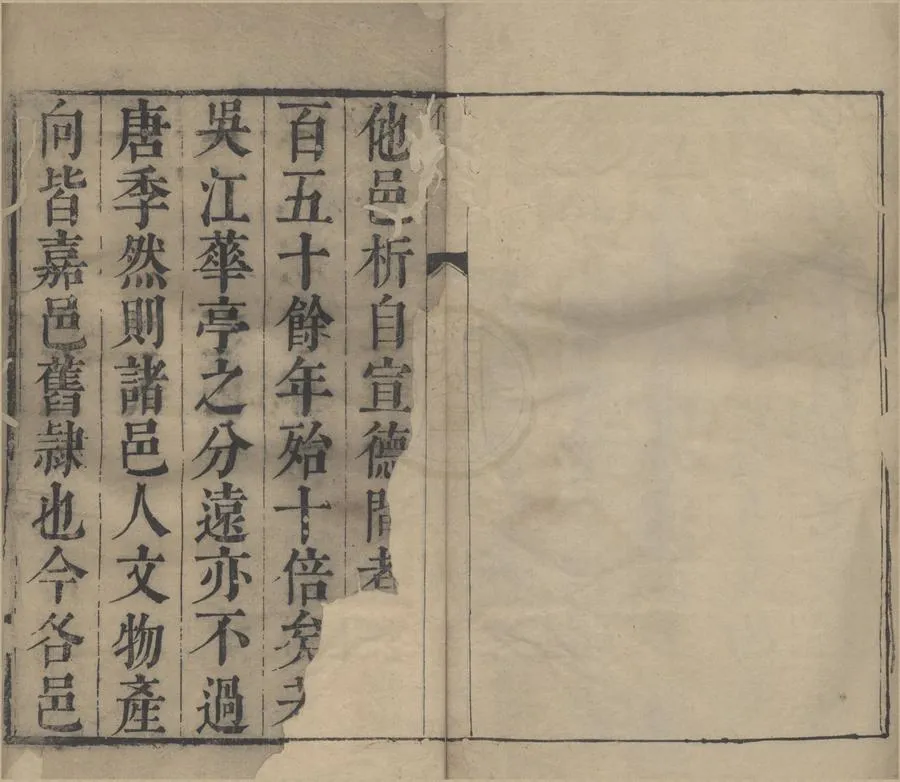 他邑析自宣德間者
百五十餘年殆十倍矣
吳江華亭之分遠亦不過
唐季然則諸邑人文物產
向皆嘉邑舊隸也今各邑